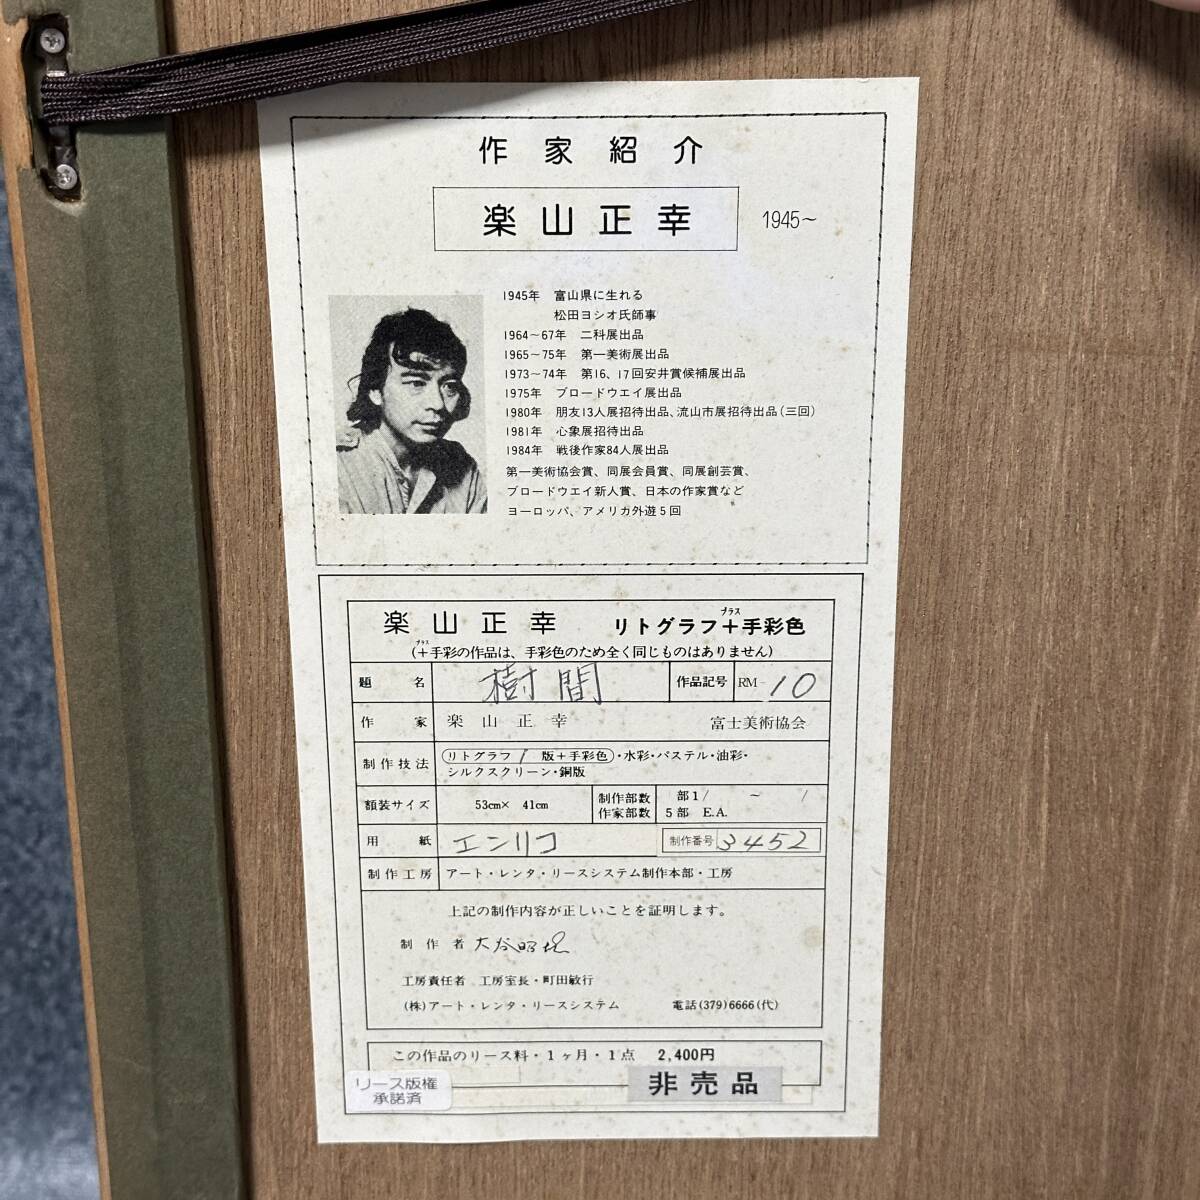 作家紹介
楽山正幸 1945～
1945年 富山県に生れる
松田ヨシオ氏師事
1964～67年 二科展出品
1965～75年 第一美術展出品
1973～74年 第16、17回安井賞候補展出品
1975年 ブロードウエイ展出品
1980年 朋友13人展招待出品、流山市展招待出品(三回)
1981年 心象展招待出品
1984年 戦後作家84人展出品
第一美術協会賞、同展会員賞、同展創芸賞、
ブロードウエイ新人賞、日本の作家賞など
ヨーロッパ、アメリカ外遊5回
楽山正幸 リトグラフ+手彩色
プラス
(+手彩の作品は、手彩色のため全く同じものはありません)
プラス
題名 樹間 作品記号 RM-10
作家 楽山正幸 富士美術協会
制作技法 リトグラフ/版+手彩色・水彩・パステル・油彩・
シルクスクリーン・銅版
額装サイズ 53cm× 41cm 制作部数 部1/ ～ /
作家部数 5部 E.A.
用紙 エンリコ 制作番号 3452
制作工房 アート・レンタ・リースシステム制作本部・工房
上記の制作内容が正しいことを証明します。
制作者
工房責任者 工房室長・町田敏行
(株)アート・レンタ・リースシステム 電話(379)6666(代)
この作品のリース料・1ヶ月・1点 2,400円
リース版権
承諾済
非売品